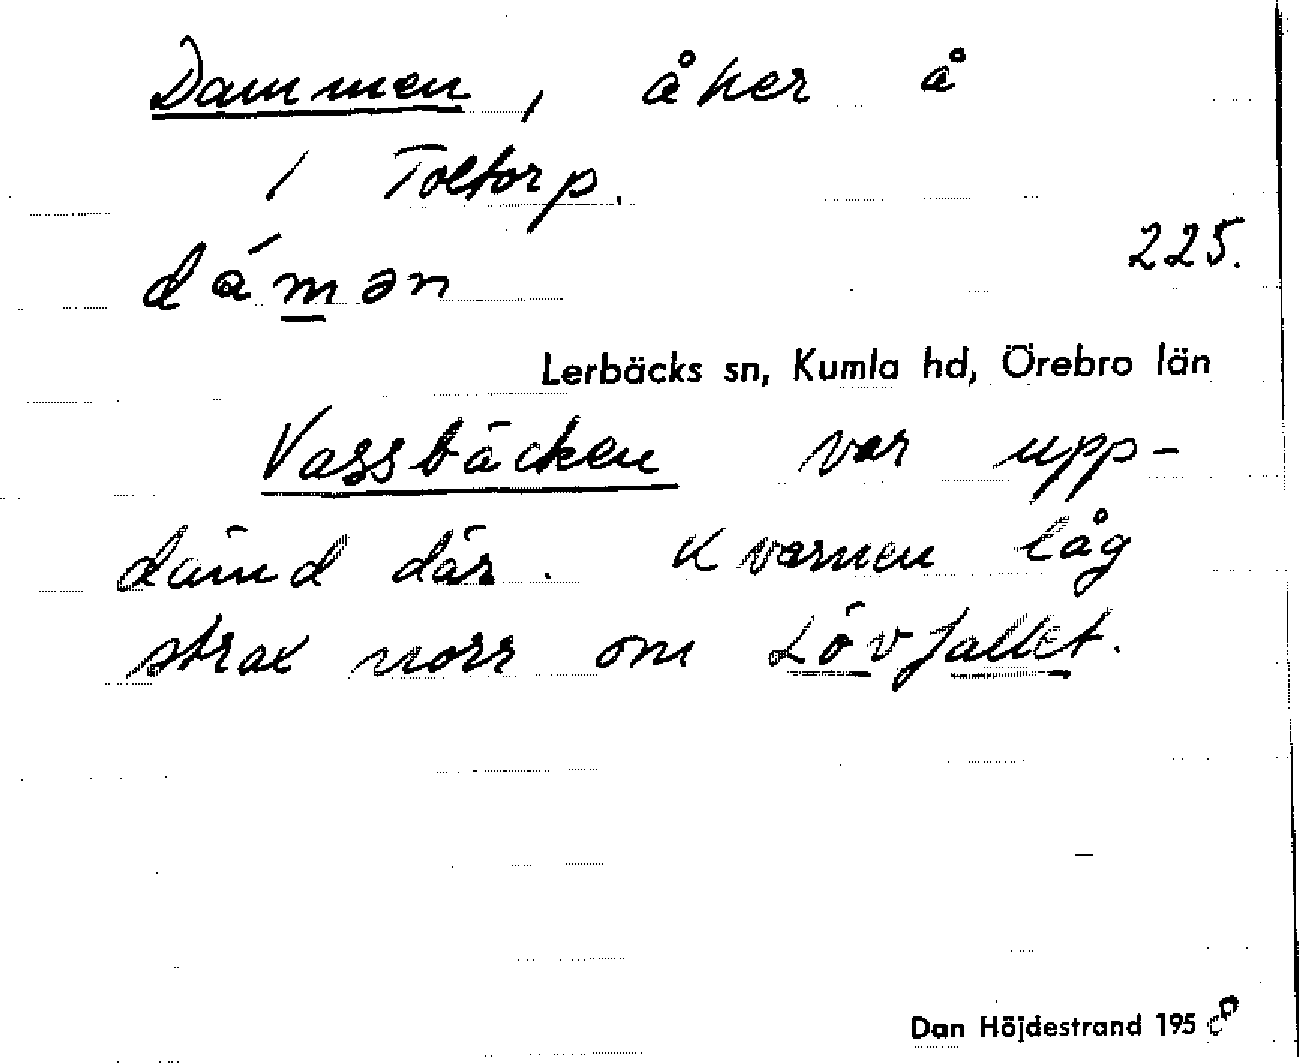 Dammen, åker å
1 Toltorp.
dámən
225.
Lerbäcks sn, Kumla hd, Örebro län
Vassbäcken var upp-
dämd där. Kvarnen låg
strax norr om Lövfallet.
Dan Höjdestrand 195